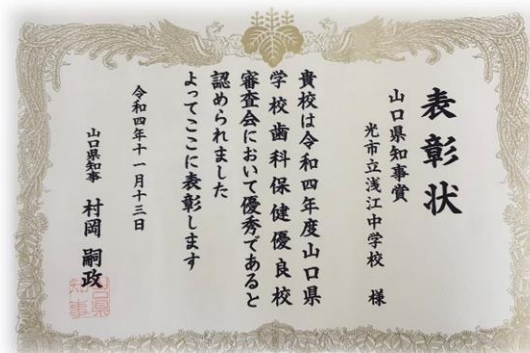 表彰状
山口県知事賞
光市立浅江中学校 様
貴校は令和四年度山口県
学校歯科保健優良校
審査会において優秀であると
認められました
よってここに表彰します
令和四年十一月十三日
山口県知事 村岡嗣政
山口県
知事